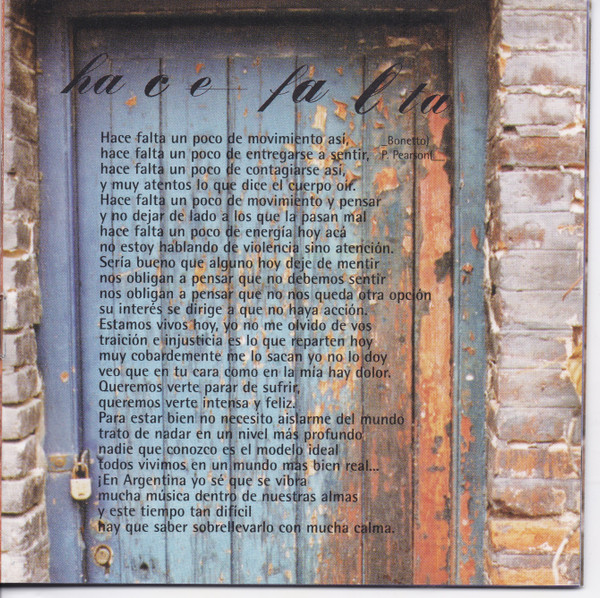 hace falta
Hace falta un poco de movimiento así,
Bonetto)
hace falta un poco de entregarse a sentir,
P. Pearson(
hace falta un poco de contagiarse así,
y muy atentos lo que dice el cuerpo oír.
Hace falta un poco de movimiento y pensar
y no dejar de lado a los que la pasan mal
hace falta un poco de energía hoy acá
no estoy hablando de violencia sino atención.
Sería bueno que alguno hoy deje de mentir
nos obligan a pensar que no debemos sentir
nos obligan a pensar que no nos queda otra opción
su interés se dirige a que no haya acción.
Estamos vivos hoy, yo no me olvido de vos
traición e injusticia es lo que reparten hoy
muy cobardemente me lo sacan yo no lo doy
veo que en tu cara como en la mía hay dolor.
Queremos verte parar de sufrir,
queremos verte intensa y feliz.
Para estar bien no necesito aislarme del mundo
trato de nadar en un nivel más profundo
nadie que conozco es el modelo ideal
todos vivimos en un mundo más bien real...
¡En Argentina yo sé que se vibra
mucha música dentro de nuestras almas
y este tiempo tan difícil
hay que saber sobrellevarlo con mucha calma.